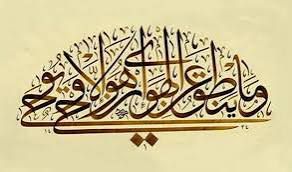 وما ينطق عن الهوى إن هو إلا وحي يوحى
١٤ ٢٤